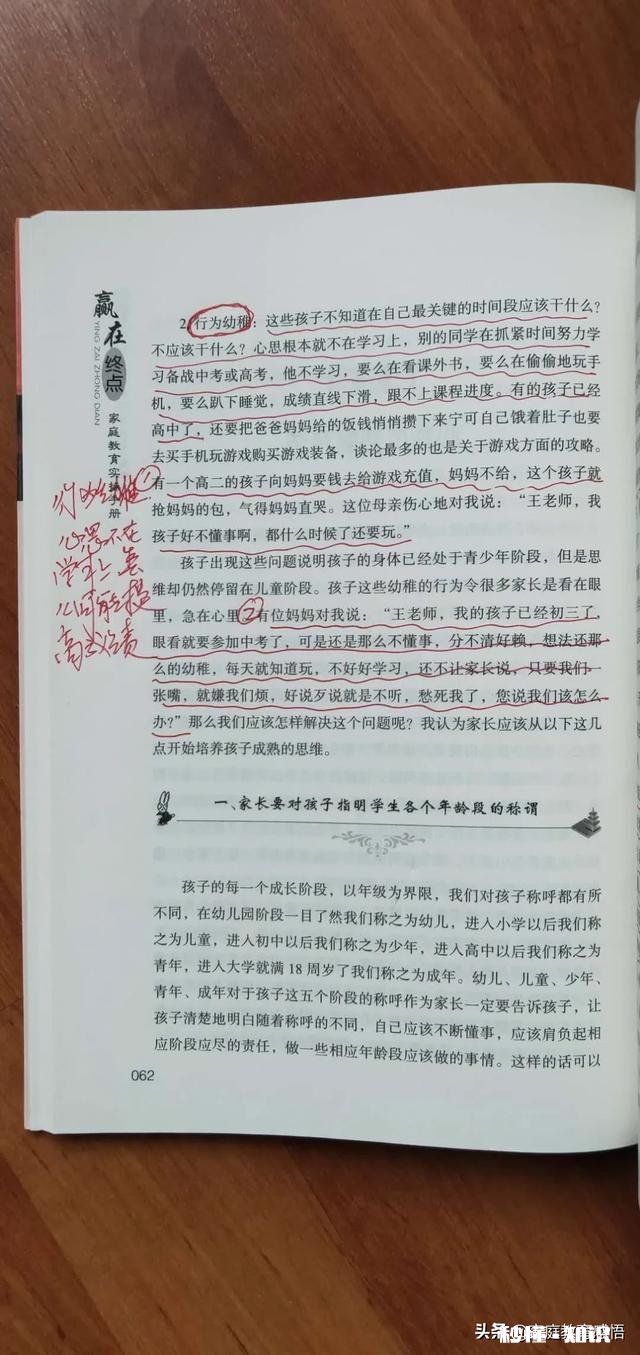 赢在终点
YING ZAI ZHONG DIAN
家庭教育实操手册
2.行为幼稚：这些孩子不知道在自己最关键的时间段应该干什么？
不应该干什么？心思根本就不在学习上，别的同学在抓紧时间努力学
习备战中考或高考，他不学习，要么在看课外书，要么在偷偷地玩手
机，要么趴下睡觉，成绩直线下滑，跟不上课程进度。有的孩子已经
高中了，还要把爸爸妈妈给的饭钱悄悄攒下来宁可自己饿着肚子也要
去买手机玩游戏购买游戏装备，谈论最多的也是关于游戏方面的攻略。
有一个高二的孩子向妈妈要钱去给游戏充值，妈妈不给，这个孩子就
抢妈妈的包，气得妈妈直哭。这位母亲伤心地对我说：“王老师，我
孩子好不懂事啊，都什么时候了还要玩。”
孩子出现这些问题说明孩子的身体已经处于青少年阶段，但是思
维却仍然停留在儿童阶段。孩子这些幼稚的行为令很多家长是看在眼
里，急在心里②有位妈妈对我说：“王老师，我的孩子已经初三了，
眼看就要参加中考了，可是还是那么不懂事，分不清好赖，想法还那
么的幼稚，每天就知道玩，不好好学习，还不让家长说，只要我们一
张嘴，就嫌我们烦，好说歹说就是不听，愁死我了，您说我们该怎么
办？”那么我们应该怎样解决这个问题呢？我认为家长应该从以下这几
点开始培养孩子成熟的思维。
①
心思不在
学生上
高
一、家长要对孩子指明学生各个年龄段的称谓
孩子的每一个成长阶段，以年级为界限，我们对孩子称呼都有所
不同，在幼儿园阶段一目了然我们称之为幼儿，进入小学以后我们称
之为儿童，进入初中以后我们称之为少年，进入高中以后我们称之为
青年，进入大学就满 18 周岁了我们称之为成年。幼儿、儿童、少年、
青年、成年对于孩子这五个阶段的称呼作为家长一定要告诉孩子，让
孩子清楚地明白随着称呼的不同，自己应该不断懂事，应该肩负起相
应阶段应尽的责任，做一些相应年龄段应该做的事情。这样的话可以
062
头条 @家庭教育感悟
秒懂·知识